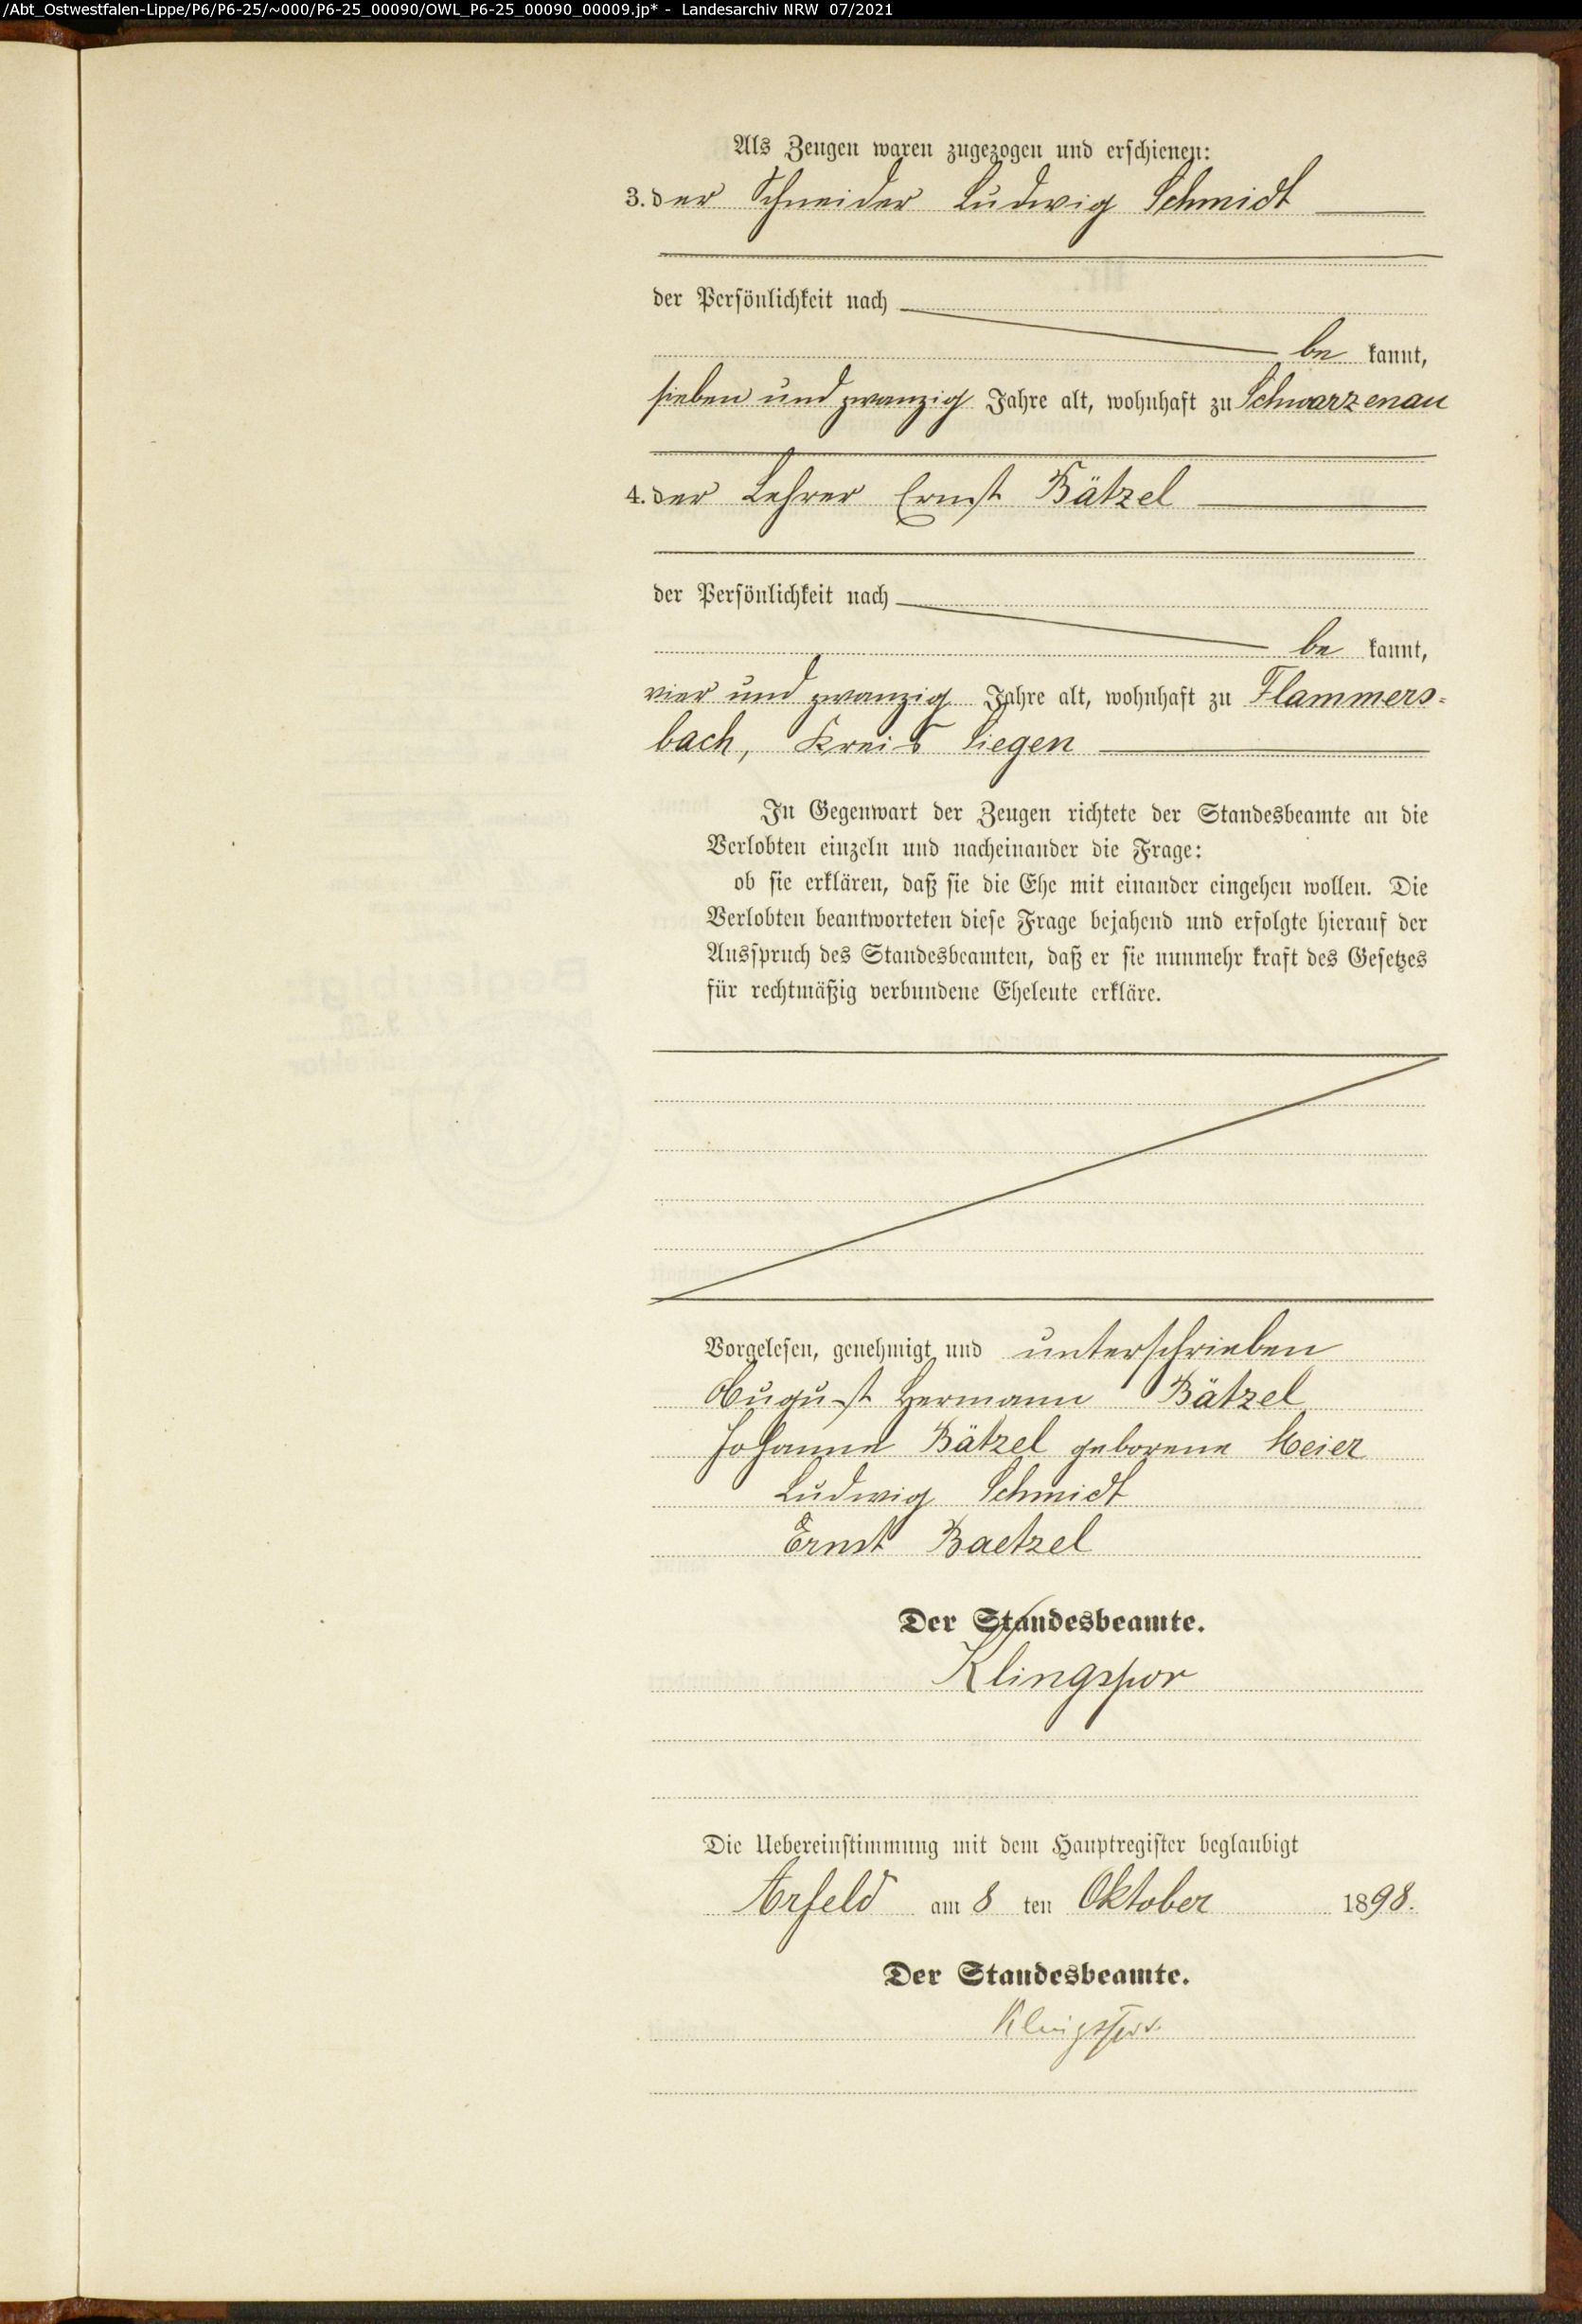 /Abt_Ostwestfalen-Lippe/P6/P6-25/~000/P6-25_00090/OWL_P6-25_00090_00009.jp* - Landesarchiv NRW 07/2021
Als Zeugen waren zugezogen und erschienen:
3. der Schneider Ludwig Schmidt
der Persönlichkeit nach
be kannt,
sieben und zwanzig Jahre alt, wohnhaft zu Schwarzenau
4. der Lehrer Ernst Bätzel
der Persönlichkeit nach
be kannt,
vier und zwanzig Jahre alt, wohnhaft zu Flammers-
bach, Kreis Siegen
In Gegenwart der Zeugen richtete der Standesbeamte an die
Verlobten einzeln und nacheinander die Frage:
ob sie erklären, daß sie die Ehe mit einander eingehen wollen. Die
Verlobten beantworteten diese Frage bejahend und erfolgte hierauf der
Ausspruch des Standesbeamten, daß er sie nunmehr kraft des Gesetzes
für rechtmäßig verbundene Eheleute erkläre.
Vorgelesen, genehmigt und unterschrieben
August Hermann Bätzel
Johanne Bätzel geborene Meier
Ludwig Schmidt
Ernst Baetzel
Der Standesbeamte.
Klingspor
Die Uebereinstimmung mit dem Hauptregister beglaubigt
Arfeld am 8 ten Oktober 1898.
Der Standesbeamte.
Klingspor